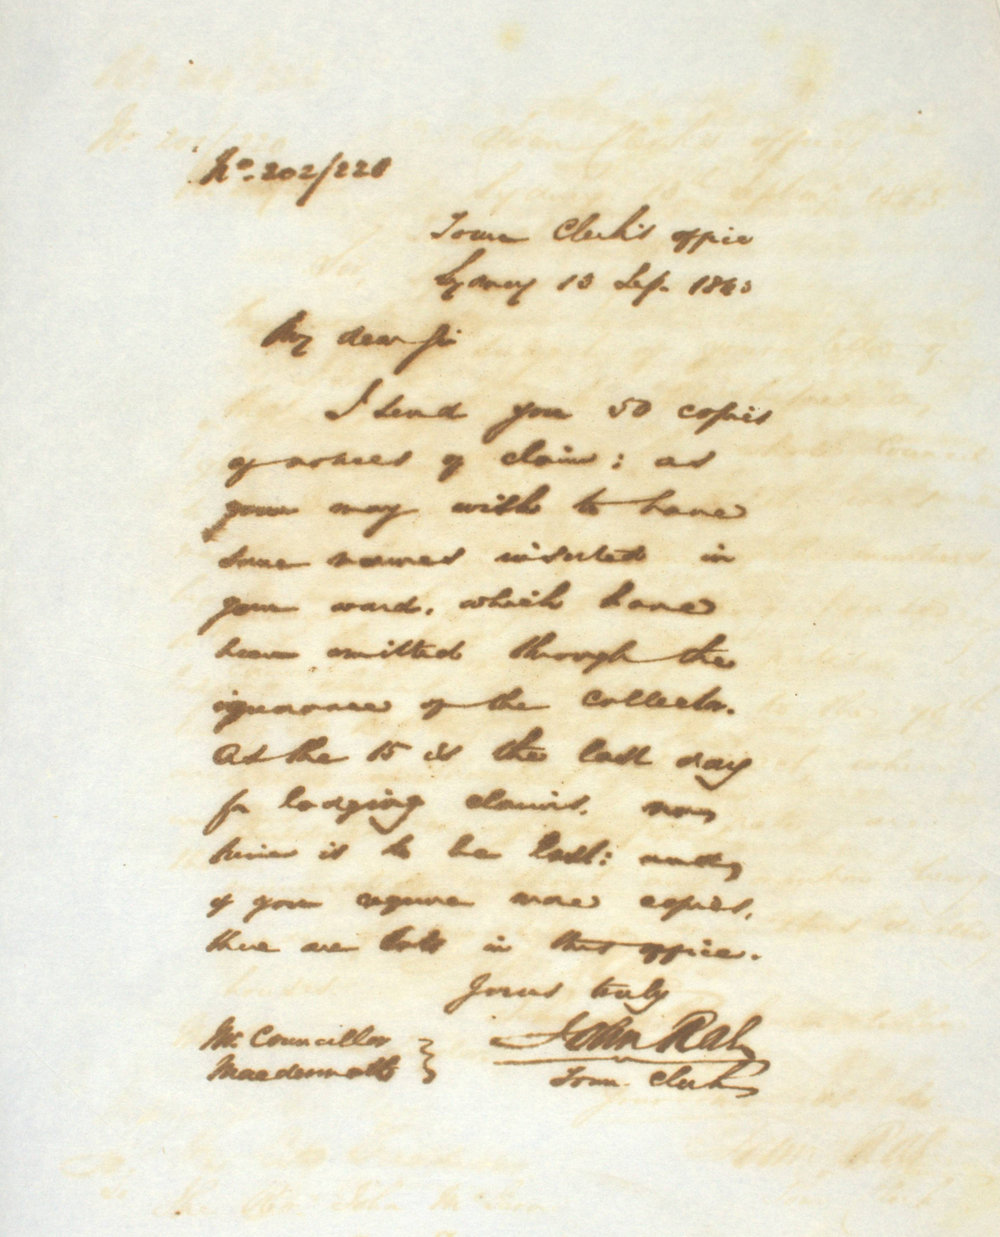 No. 202/220
Town Clerk's office
Sydney 13 Sep. 1843
My dear Sir
I send you 50 copies
of notices of claim; as
you may wish to have
some names inserted in
your ward, which have
been omitted through the
ignorance of the Collector.
As the 15 is the last day
for lodging claims, no
time is to be lost; and
if you require more copies,
there are lots in this office.
Yours truly
John Rae
Town Clerk
Mr. Councillor
Macdermott